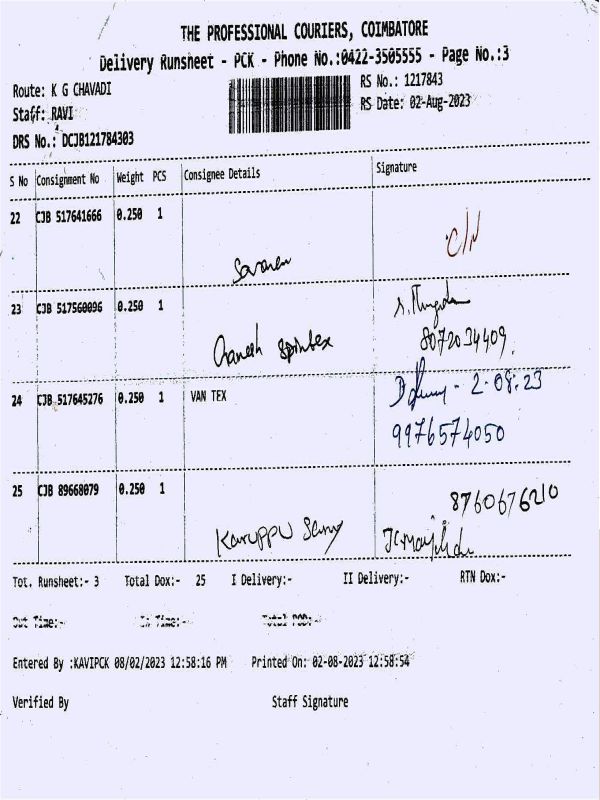 THE PROFESSIONAL COURIERS, COIMBATORE
Delivery Runsheet - PCK - Phone No.:0422-3505555 - Page No.:3
Route: K G CHAVADI
RS No.: 1217843
Staff: RAVI
RS Date: 02-Aug-2023
DRS No.: DCJB121784303
S No Consignment No Weight PCS Consignee Details Signature
22 CJB 517641666 0.250 1
C/N
Saranan
23 CJB 517560096 0.250 1
8072034409.
Ganesh Spintex
24 CJB 517645276 0.250 1 VAN TEX
- 2.08.23
9976574050
25 CJB 89668079 0.250 1
8760676210
Karuppu Samy
Tot. Runsheet:- 3 Total Dox:- 25 I Delivery:- II Delivery:- RTN Dox:-
Out Time:- In Time:- Total POD:-
Entered By :KAVIPCK 08/02/2023 12:58:16 PM Printed On: 02-08-2023 12:58:54
Verified By Staff Signature